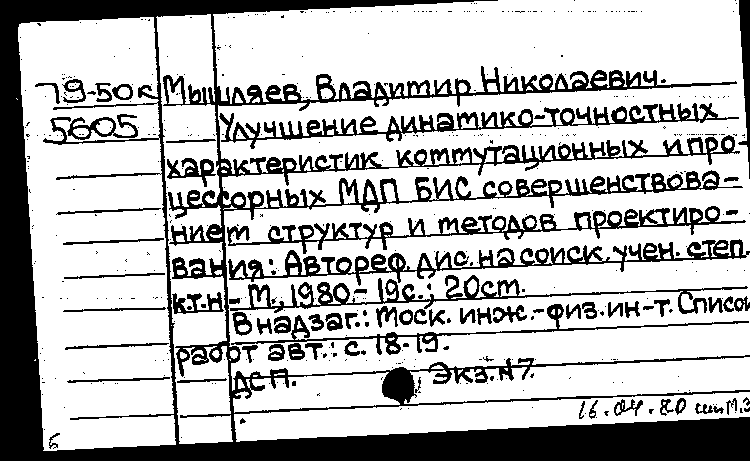 79-50к Мышляев, Владимир Николаевич.
5605 Улучшение динамико-точностных
характеристик коммутационных и про-
цессорных МДП БИС совершенствова-
нием структур и методов проектиро-
вания: Автореф. дис. на соиск. учен. степ.
к.т.н. - М., 1980.- 19с.; 20см.
В надзаг.: Моск. инж.-физ. ин-т. Список
работ авт.: с. 18-19.
ДСП. Экз. №7.
16.04.80
б